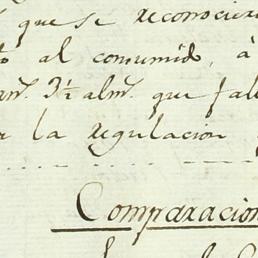 que se reconocier
to al consumido, á
3½ alms. que fal
la regulacion
Comparacion